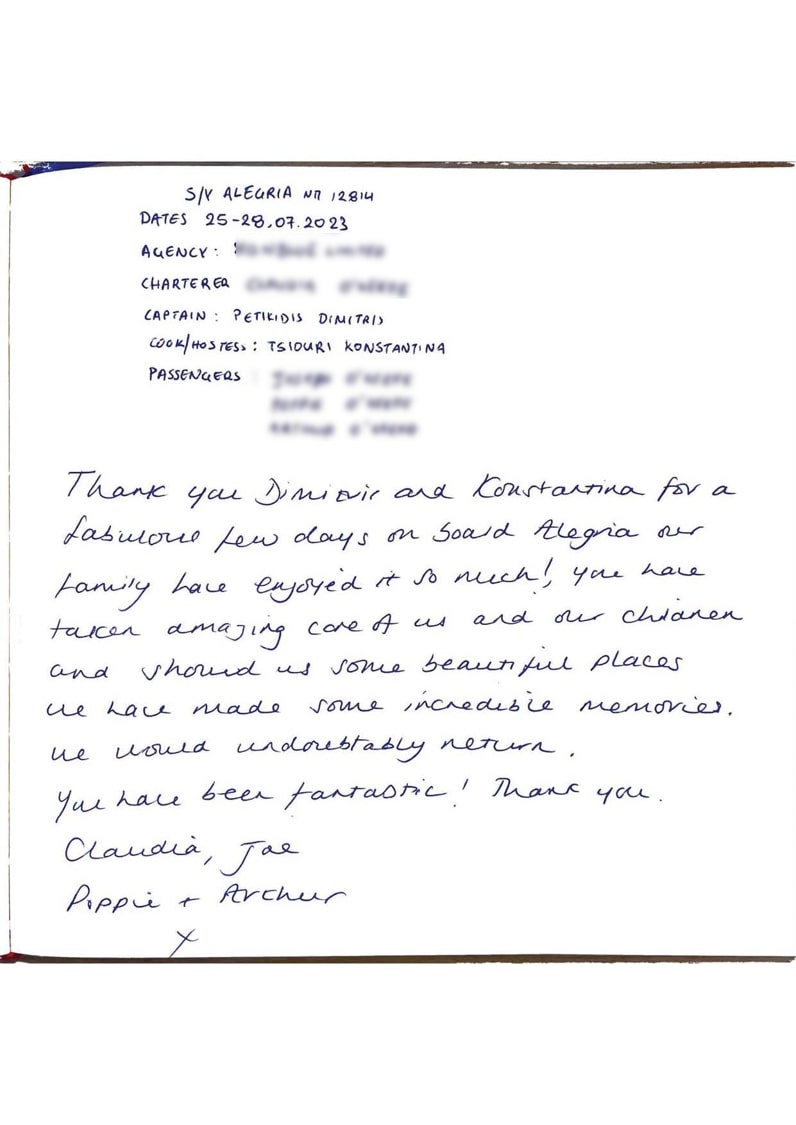 S/Y ALEGRIA ΝΠ 12814
DATES 25-28.07.2023
AGENCY:
CHARTERER
CAPTAIN: PETIKIDIS DIMITRIS
COOK/HOSTESS: TSIOURI KONSTANTINA
PASSENGERS
Thank you Dimitric and Konstantina for a
fabulous few days on board Alegria our
family have enjoyed it so much! you have
taken amazing care of us and our children
and showed us some beautiful places
we have made some incredible memories.
we would undoubtably return.
You have been fantastic! Thank you.
Claudia, Joe
Poppie + Arthur
x